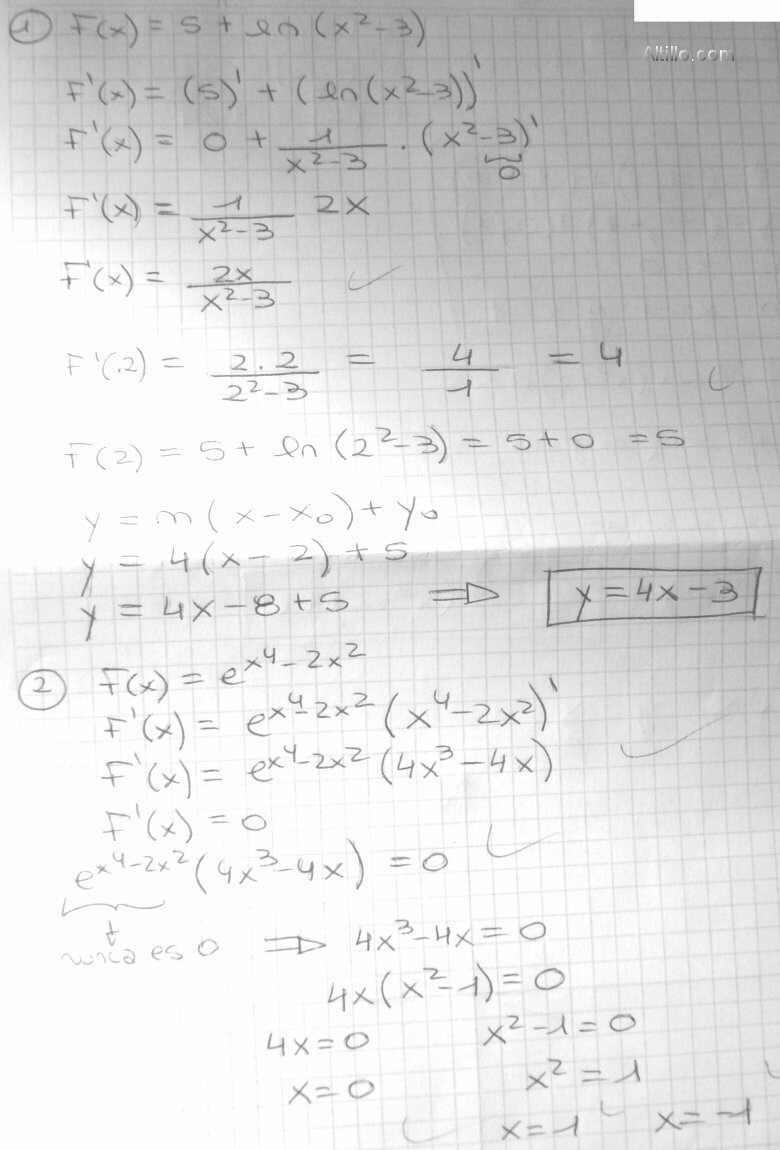 Altillo.com
① F(x) = 5 + ln (x²-3)
F'(x) = (5)' + (ln(x²-3))'
F'(x) = 0 + 1/(x²-3) . (x²-3)'
0
F'(x) = 1/(x²-3) 2x
F'(x) = 2x/(x²-3)
F'(2) = (2.2)/(2²-3) = 4/1 = 4
F(2) = 5 + ln (2²-3) = 5+0 = 5
y = m(x-x₀) + y₀
y = 4(x-2) + 5
y = 4x-8+5 ⇒ y = 4x-3
② F(x) = e^(x⁴-2x²)
F'(x) = e^(x⁴-2x²) (x⁴-2x²)'
F'(x) = e^(x⁴-2x²) (4x³-4x)
F'(x) = 0
e^(x⁴-2x²) (4x³-4x) = 0
nunca es 0 ⇒ 4x³-4x = 0
4x(x²-1) = 0
4x = 0 x²-1 = 0
x = 0 x² = 1
x = 1 x = -1